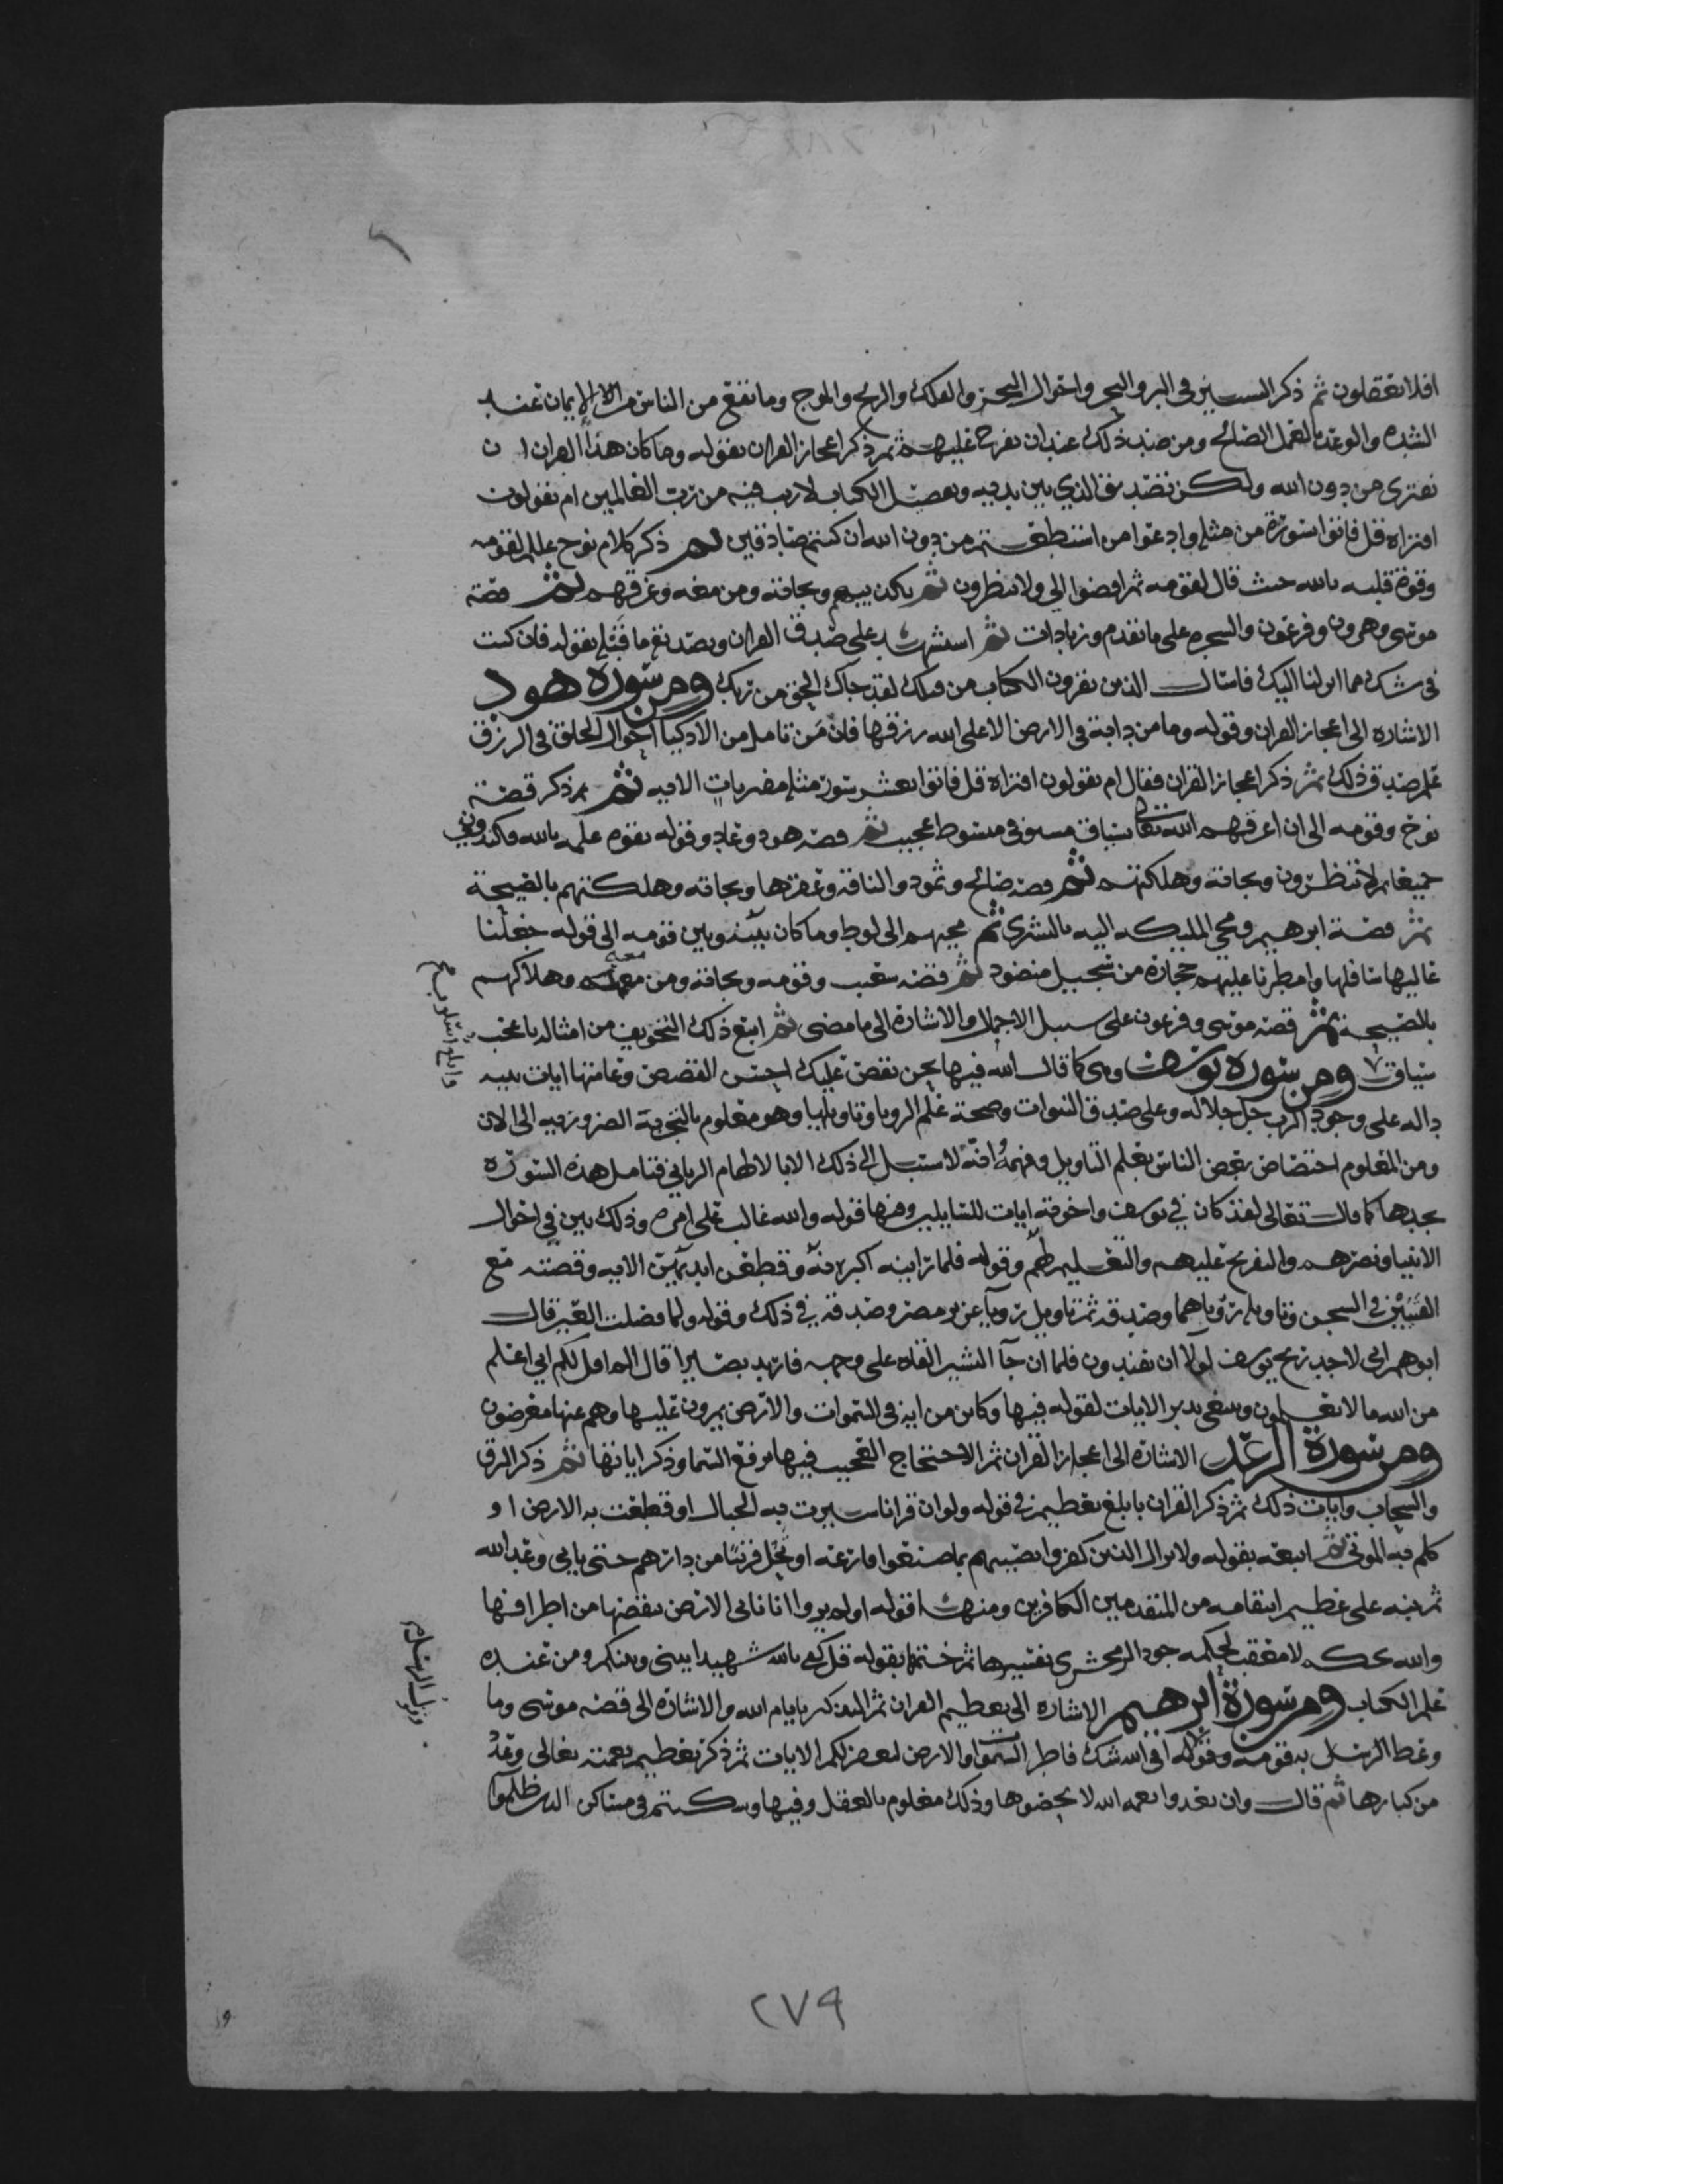 افلا تعقلون ثم ذكر التسيير في البر والبحر واحوال البحر والفلك والريح والموج وما يقع من الناس من الايمان عند
الشده والوعد بالعمل الصالح ومن ضد ذلك عند ان يفرج عليهم ثم ذكر اعجاز القران بقوله وما كان هذا القران ان
يفترى من دون الله ولكن تصديق الذي بين يديه وتفصيل الكتاب لا ريب فيه من رب العالمين ام يقولون
افتراه قل فاتوا بسورة من مثله وادعوا من استطعتم من دون الله ان كنتم صادقين ثم ذكر كلام نوح عللم لقومه
وقوة قلبه بالله حيث قال لقومه ثم اقضوا الي ولا تنظرون ثم تكذيبهم ونجاته ومن معه وغرقهم ثم قصة
موسى وهرون وفرعون والسحره على ما تقدم وزيادات ثم استشهد على صدق القران وتصديقه ما قبله بقوله فان كنت
في شك مما انزلنا اليك فاسال الذين يقرون الكتاب من قبلك لقد جاك الحق من ربك ومن سورة هود
الاشاره الى اعجاز القران وقوله وما من دابة في الارض الا على الله رزقها فان من تامل من الاذكيا احوال الخلق في الرزق
علم صدق ذلك ثم ذكر اعجاز القران فقال ام يقولون افتراه قل فاتوا بعشر سور مثله مفتريات الايه ثم ذكر قصة
نوح وقومه الى ان اغرقهم الله تعالى بسياق مستوفى مبسوط عجيب ثم قصة هود وعاد وقوله لقومه عللم بالله فكيدوني
جميعا ثم لا تنظرون ونجاته وهلكتهم ثم قصة صالح وثمود والناقه وعقرها ونجاته وهلكتهم بالصيحة
ثم قصة ابرهيم ومجي المليكه اليه بالبشرى ثم مجيهم الى لوط وما كان بينه وبين قومه الى قوله جعلنا
عاليها سافلها وامطرنا عليهم حجارة من سجيل منضود ثم قصة شعيب وقومه ونجاته ومن معه وهلاكهم
بالصيحة ثم قصة موسى وفرعون على سبيل الاجمال والاشارة الى ما مضى ثم اتبع ذلك التخويف من امثاله باعجب
سياق وابلغ اسلوب ومن سورة يوسف وهي كما قال الله فيها نحن نقص عليك احسن القصص وعامتها ايات بينه
داله على وجود الرب جل جلاله وعلى صدق النبوات وصحة علم الرويا وتاويلها وهو معلوم بالتجربة الضروريه الى الان
ومن المعلوم اختصاص بعض الناس بعلم التاويل وفهمه وانه لا سبيل الى ذلك الا بالالهام الرباني فتامل هذه السورة
تجدها كما قال تعالى لقد كان في يوسف واخوته ايات للسايلين ومنها قوله والله غالب على امره وذلك بين في احوال
الانبيا ونصرهم والتفريج عليهم والتعليم لهم وقوله فلما راينه اكبرنه وقطعن ايديهن الايه وقصته مع
الفتيين في السجن وتاويله روياهما وصدقه ثم تاويل رويا عزيز مصر وصدقه في ذلك وقوله ولما فصلت العير قال
ابوهم اني لاجد ريح يوسف لولا ان تفندون فلما ان جا البشير القاه على وجهه فارتد بصيرا قال الم اقل لكم اني اعلم
من الله ما لا تعلمون وينبغي تدبر الايات لقوله فيها وكاين من اية في السموات والارض يمرون عليها وهم عنها معرضون
ومن سورة الرعد الاشارة الى اعجاز القران ثم الاحتجاج العجيب فيها برفع السما وذكر اياتها ثم ذكر البرق
والسحاب وايات ذلك ثم ذكر القران بابلغ تعظيم في قوله ولو ان قرانا سيرت به الجبال او قطعت به الارض او
كلم به الموتى ثم اتبعه بقوله ولا يزال الذين كفروا تصيبهم بما صنعوا قارعة او تحل قريبا من دارهم حتى ياتي وعد الله
ثم نبه على عظيم انتقامه من المتقدمين الكافرين ومنها قوله اولم يروا انا ناتي الارض ننقصها من اطرافها
والله يحكم لا معقب لحكمه جود الزمخشري تفسيرها ثم ختمها بقوله قل كفى بالله شهيدا بيني وبينكم ومن عنده
علم الكتاب ومن سورة ابرهيم الاشاره الى تعظيم القران ثم التذكير بايام الله والاشارة الى قصة موسى وما
وعظ الرسل به قومه وقوله افي الله شك فاطر السموات والارض لبعض تلكم الايات ثم ذكر تعظيم نعمته تعالى وعد
من كبارها ثم قال وان تعدوا نعمه الله لا تحصوها وذلك معلوم بالعقل وفيها وسكنتم في مساكن الذين ظلموا
وابلغ اسلوب صح
٢٧٩